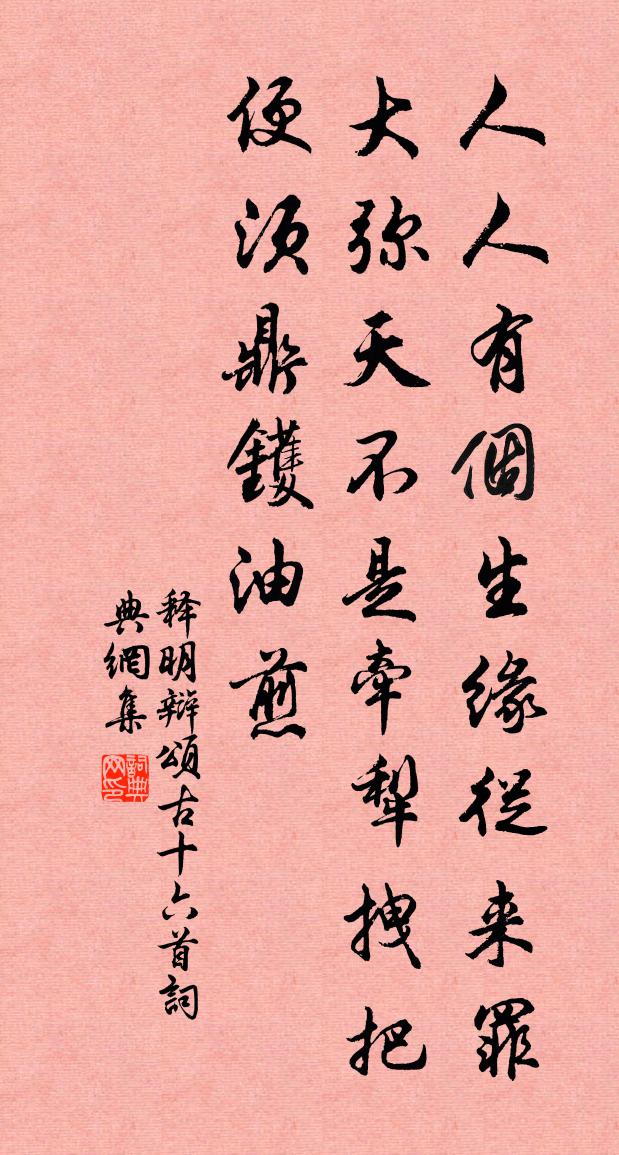 人人有個生緣從来罪
大弥天不是牽犁拽把
便須鼎鑊油煎
释明辯頌古十六首詞
典網集
詞典網印